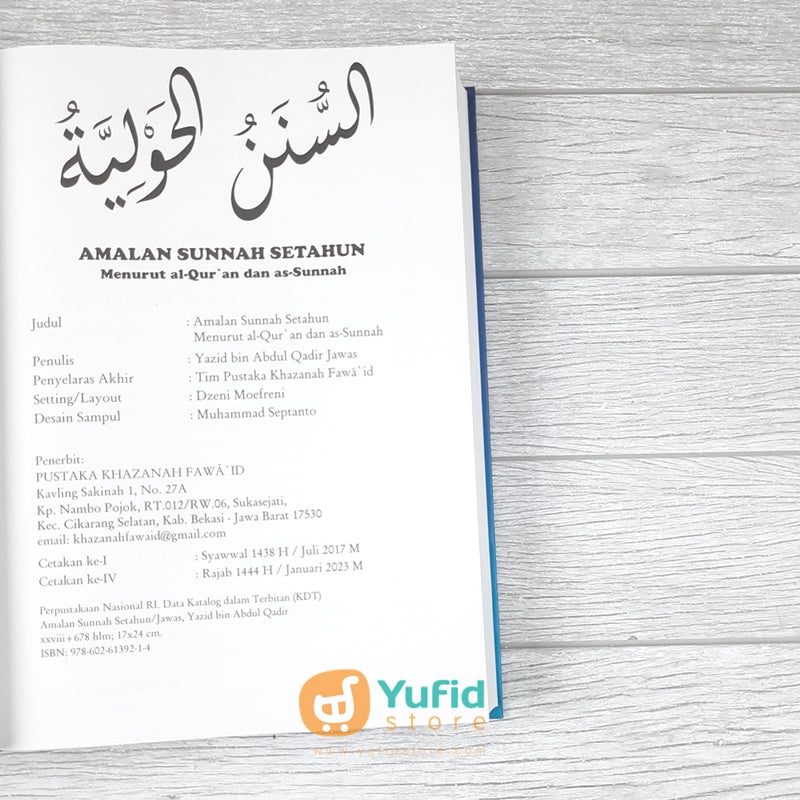 السُّنَنُ الحَوْلِيَّةُ
AMALAN SUNNAH SETAHUN
Menurut al-Qur`an dan as-Sunnah
Judul : Amalan Sunnah Setahun
Menurut al-Qur`an dan as-Sunnah
Penulis : Yazid bin Abdul Qadir Jawas
Penyelaras Akhir : Tim Pustaka Khazanah Fawâ`id
Setting/Layout : Dzeni Moefreni
Desain Sampul : Muhammad Septanto
Penerbit:
PUSTAKA KHAZANAH FAWÂ`ID
Kavling Sakinah 1, No. 27A
Kp. Nambo Pojok, RT.012/RW.06, Sukasejati,
Kec. Cikarang Selatan, Kab. Bekasi - Jawa Barat 17530
email: khazanahfawaid@gmail.com
Cetakan ke-I : Syawwal 1438 H / Juli 2017 M
Cetakan ke-IV : Rajab 1444 H / Januari 2023 M
Perpustakaan Nasional RI. Data Katalog dalam Terbitan (KDT)
Amalan Sunnah Setahun/Jawas, Yazid bin Abdul Qadir
xxviii + 678 hlm; 17x24 cm.
ISBN: 978-602-61392-1-4
Yufid
store
www.yufidstore.com